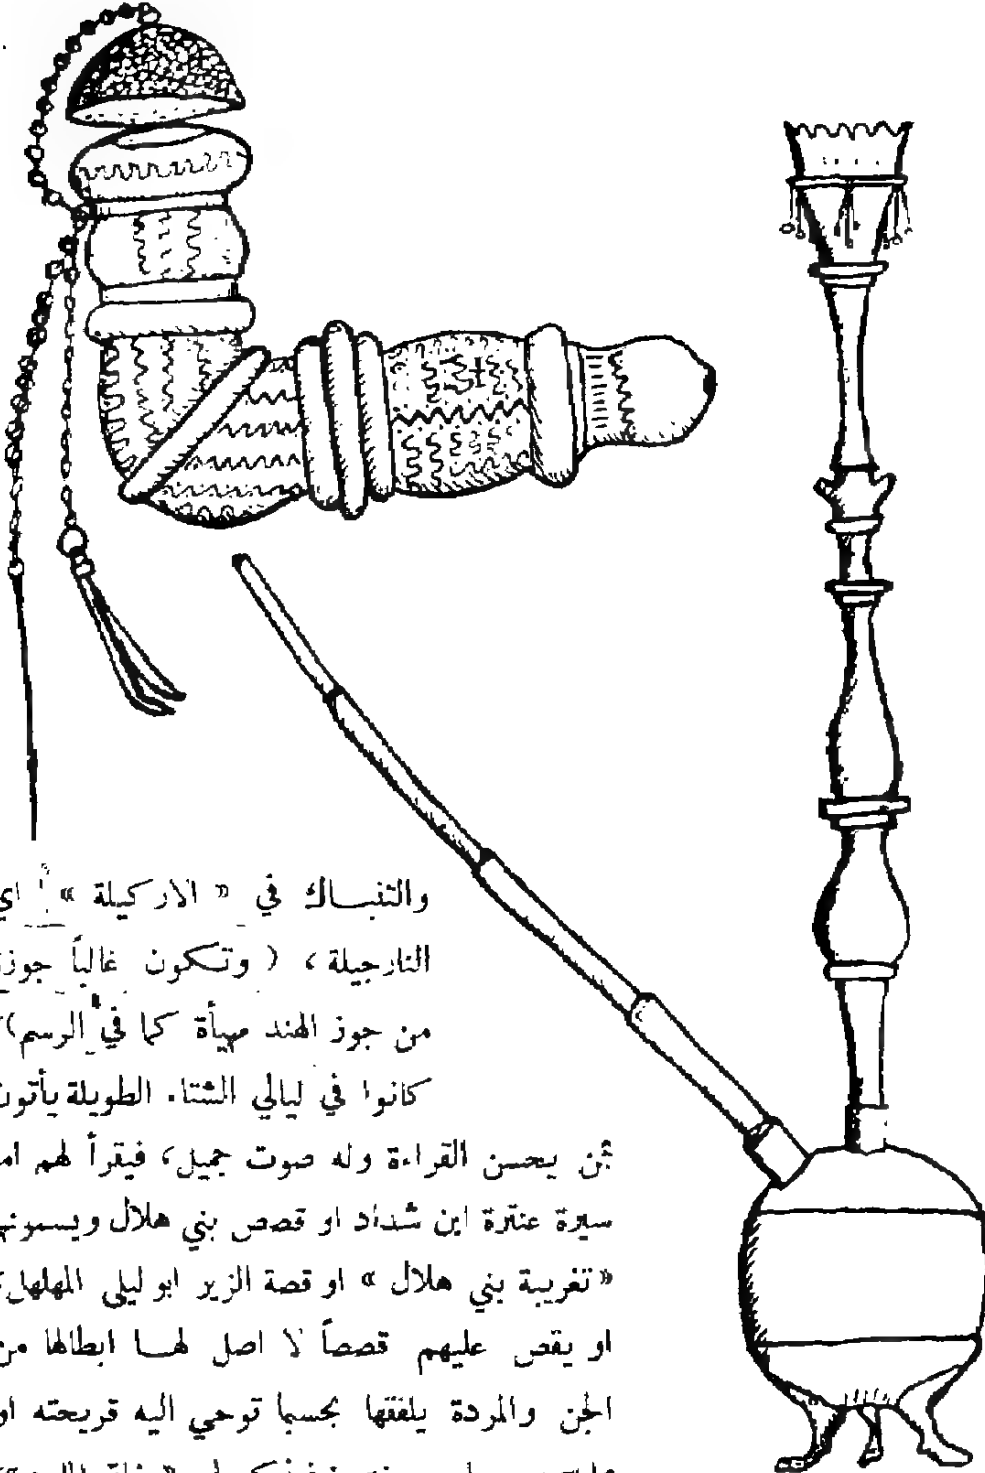 والتنباك في « الاركيلة » اي
النارجيلة ، ( وتكون غالباً جوزة
من جوز الهند مهيأة كما في الرسم)
كانوا في ليالي الشتاء الطويلة يأتون
بمن يحسن القراءة وله صوت جميل، فيقرأ لهم اما
سيرة عنترة ابن شداد او قصص بني هلال ويسمونها
« تغريبة بني هلال » او قصة الزير ابو ليلى المهلهل،
او يقص عليهم قصصاً لا اصل لها ابطالها من
الجن والمردة يلفقها بحسبما توحي اليه قريحته او